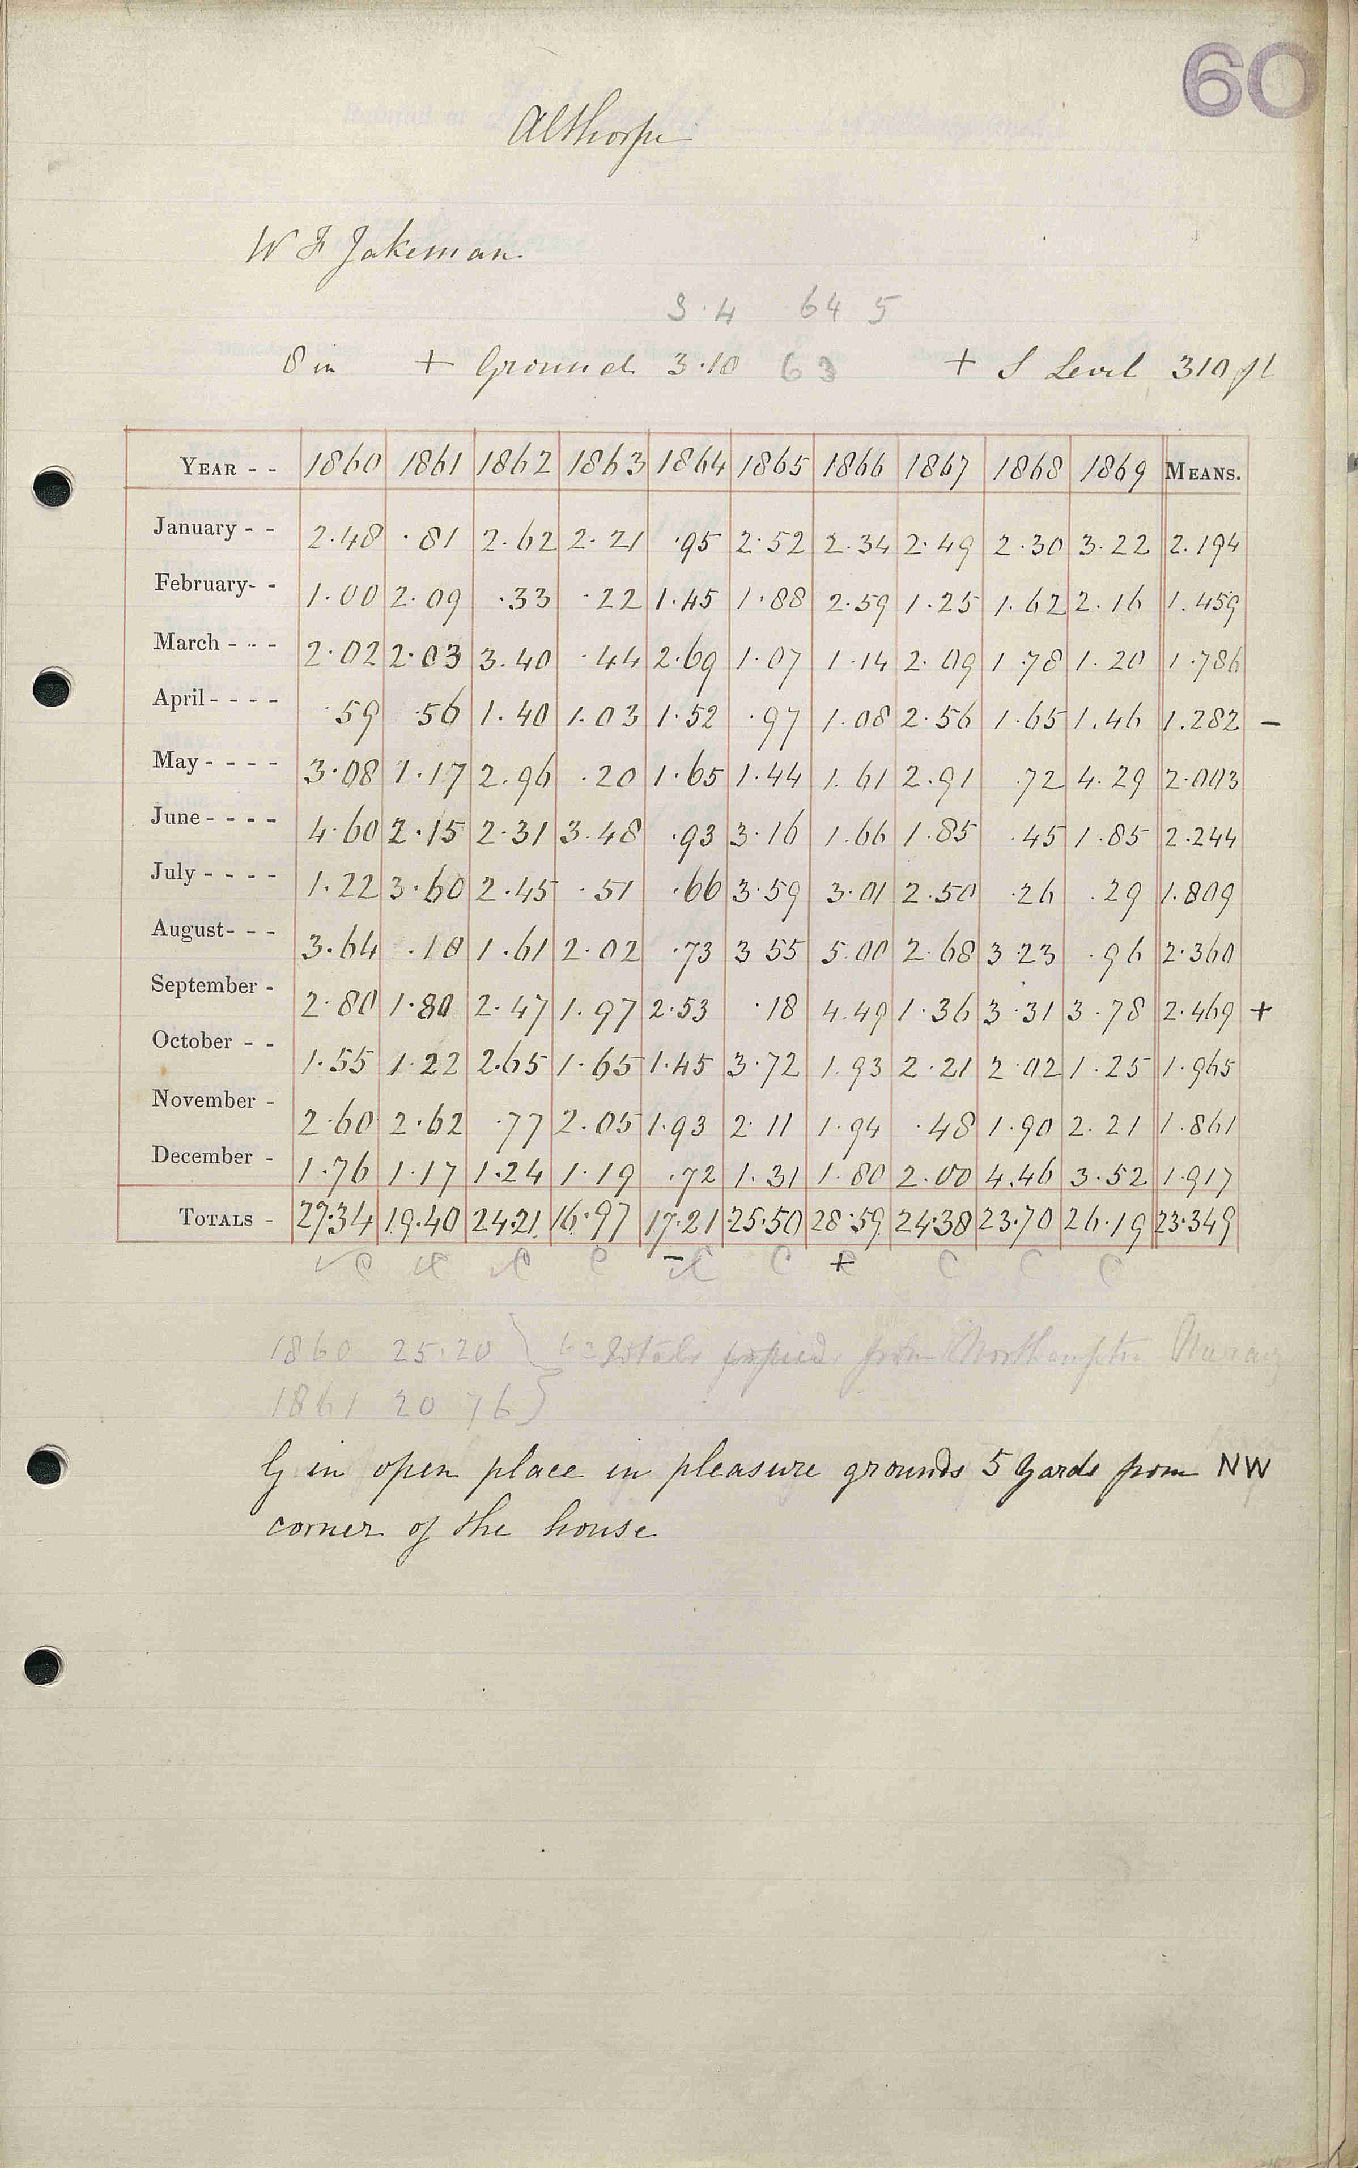 60
Althorpe
W F Jakeman
3.4 64 5
8 in + Ground 3.10 63 + S Level 310 ft
YEAR - - 1860 1861 1862 1863 1864 1865 1866 1867 1868 1869 MEANS.
January - - 2.48 .81 2.62 2.21 .95 2.52 2.34 2.49 2.30 3.22 2.194
February- - 1.00 2.09 .33 .22 1.45 1.88 2.59 1.25 1.62 2.16 1.459
March - - - 2.02 2.03 3.40 .44 2.69 1.07 1.14 2.09 1.78 1.20 1.786
April - - - - .59 .56 1.40 1.03 1.52 .97 1.08 2.56 1.65 1.46 1.282 –
May - - - - 3.08 1.17 2.96 .20 1.65 1.44 1.61 2.91 .72 4.29 2.003
June - - - - 4.60 2.15 2.31 3.48 .93 3.16 1.66 1.85 .45 1.85 2.244
July - - - - 1.22 3.60 2.45 .51 .66 3.59 3.01 2.50 .26 .29 1.809
August- - - 3.64 .18 1.61 2.02 .73 3.55 5.00 2.68 3.23 .96 2.360
September - 2.80 1.80 2.47 1.97 2.53 .18 4.49 1.36 3.31 3.78 2.469 +
October - - 1.55 1.22 2.65 1.65 1.45 3.72 1.93 2.21 2.02 1.25 1.965
November - 2.60 2.62 .77 2.05 1.93 2.11 1.94 .48 1.90 2.21 1.861
December - 1.76 1.17 1.24 1.19 .72 1.31 1.80 2.00 4.46 3.52 1.917
TOTALS - 27.34 19.40 24.21 16.97 17.21 25.50 28.59 24.38 23.70 26.19 23.349
C C C C – C C + C C C
1860 25.20 } totals copied from Northampton
1861 20 76 }
G in open place in pleasure grounds 5 yards from NW
corner of the house